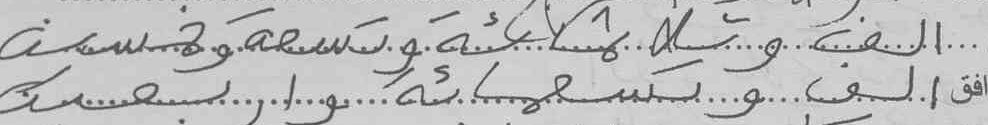 الف و ثلاثمائة و تسعة و خمسين
افق الف و تسعمائة و اربعين